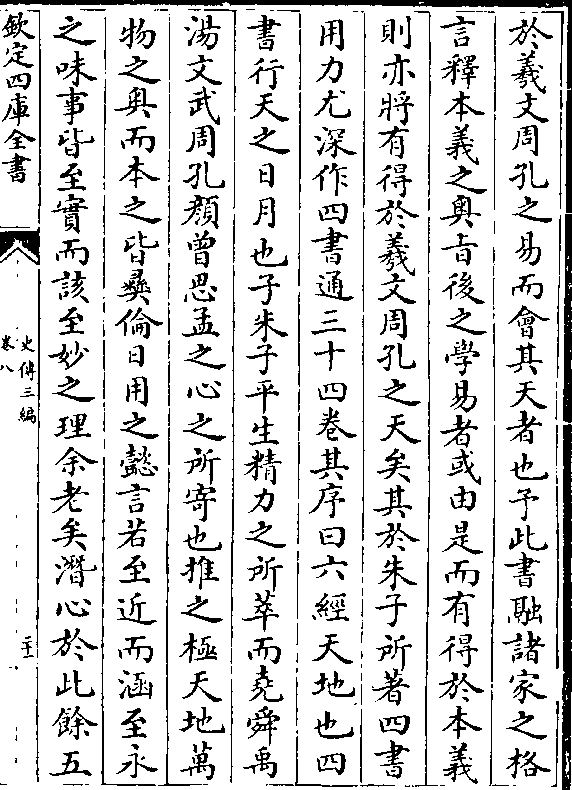 於羲文周孔之易而會其天者也予此書融諸家之格
言釋本義之奥㫖後之學易者或由是而有得於本義
則亦將有得於羲文周孔之天矣其於朱子所著四書
用力尤深作四書通三十四巻其序曰六經天地也四
書行天之日月也子朱子平生精力之所萃而堯舜禹
湯文武周孔顔曾思孟之心之所寄也推之極天地萬
物之奥而本之皆彛倫日用之懿言若至近而涵至永
之味事皆至實而該至妙之理余老矣潛心於此餘五
欽定四庫全書
史傳三編
巻八
二十一